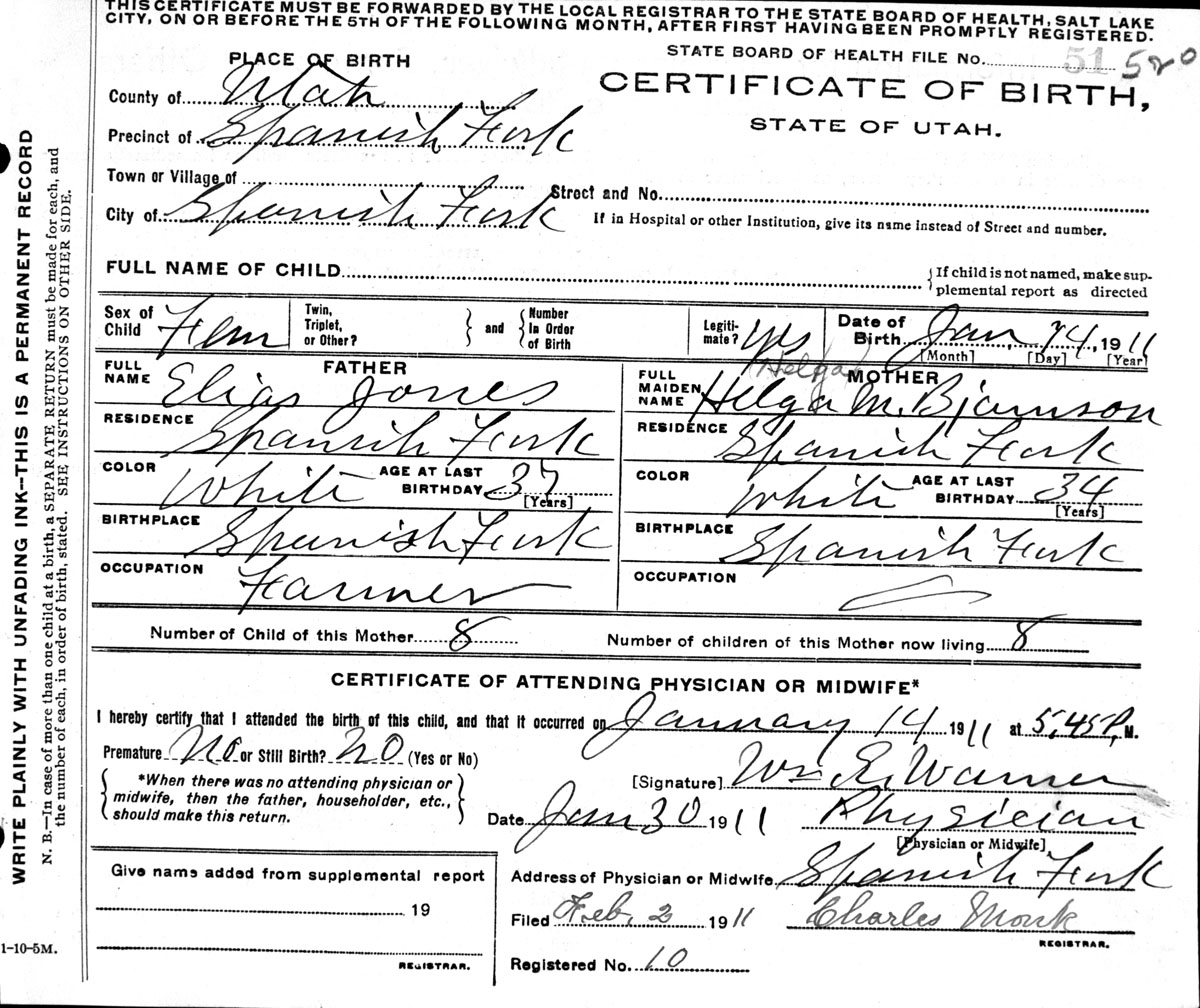 THIS CERTIFICATE MUST BE FORWARDED BY THE LOCAL REGISTRAR TO THE STATE BOARD OF HEALTH, SALT LAKE
CITY, ON OR BEFORE THE 5TH OF THE FOLLOWING MONTH, AFTER FIRST HAVING BEEN PROMPTLY REGISTERED.
STATE BOARD OF HEALTH FILE No. 51 520
PLACE OF BIRTH
CERTIFICATE OF BIRTH,
STATE OF UTAH.
County of Utah
Precinct of Spanish Fork
Town or Village of
Street and No.
City of Spanish Fork
If in Hospital or other Institution, give its name instead of Street and number.
FULL NAME OF CHILD
If child is not named, make sup-
plemental report as directed
Sex of Child Fem
Twin, Triplet, or Other?
and
Number In Order of Birth
Legiti-mate? Yes
Date of Birth Jan, 14, 1911
[Month] [Day] [Year]
FATHER
FULL NAME Elias Jones
RESIDENCE Spanish Fork
COLOR White AGE AT LAST BIRTHDAY 37 [Years]
BIRTHPLACE Spanish Fork
OCCUPATION Farmer
Helga
MOTHER
FULL MAIDEN NAME Helga M. Bjarnson
RESIDENCE Spanish Fork
COLOR White AGE AT LAST BIRTHDAY 34 [Years]
BIRTHPLACE Spanish Fork
OCCUPATION
Number of Child of this Mother 8 Number of children of this Mother now living 8
CERTIFICATE OF ATTENDING PHYSICIAN OR MIDWIFE*
I hereby certify that I attended the birth of this child, and that it occurred on January 14 1911 at 5,45 P, M.
Premature No or Still Birth? No (Yes or No)
*When there was no attending physician or
midwife, then the father, householder, etc.,
should make this return.
[Signature] Wm E. Warner
Date Jan 30 1911 Physician
[Physician or Midwife]
Address of Physician or Midwife Spanish Fork
Filed Feb, 2 1911 Charles Monk
REGISTRAR.
Registered No. 10
Give name added from supplemental report
19
REGISTRAR.
WRITE PLAINLY WITH UNFADING INK—THIS IS A PERMANENT RECORD
N. B.—In case of more than one child at a birth, a SEPARATE RETURN must be made for each, and
the number of each, in order of birth, stated. SEE INSTRUCTIONS ON OTHER SIDE.
1-10-5M.